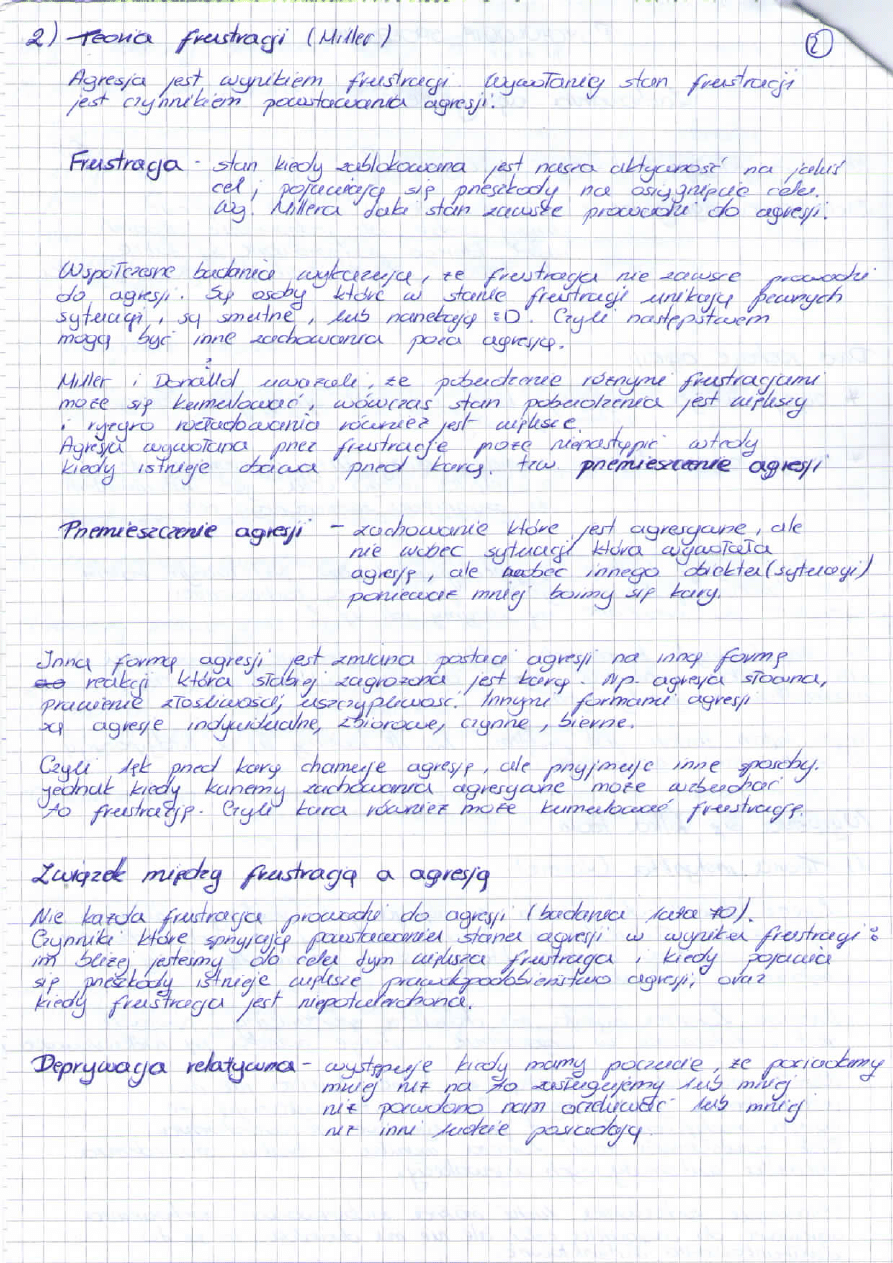 2) Teoria frustracji (Miller)
2
Agresja jest wynikiem frustracji. Wywołanie stan frustracji
jest czynnikiem powstawania agresji.
Frustracja - stan kiedy zablokowana jest nasza aktywność na jakiś
cel, pojawiają się przeszkody na osiągnięcie celu.
Wg. Millera taki stan zawsze prowadzi do agresji.
Współczesne badania wykazują, że frustracja nie zawsze prowadzi
do agresji. Są osoby które w stanie frustracji unikają pewnych
sytuacji, są smutne, lub narzekają :D. Czyli następstwem
mogą być inne zachowania poza agresją.
?
Miller i Donalld uważali, że pobudzenie różnymi frustracjami
może się kumulować, wówczas stan pobudzenia jest większy
i ryzyko rozładowania również jest większe.
Agresja wywołana przez frustracje może nienastąpić wtedy
kiedy istnieje obawa przed karą. tzw przemieszczenie agresji
Przemieszczenie agresji - zachowanie które jest agresywne, ale
nie wobec sytuacji która wywołała
agresję, ale wobec innego obiektu (sytuacji)
ponieważ mniej boimy się kary.
Inną formą agresji jest zmiana postaci agresji na inną formę
reakcji która słabiej zagrożona jest karą. Np. agresja słowna,
prawienie złośliwości, uszczypliwość. Innymi formami agresji
są agresje indywidualne, zbiorowe, czynne, bierne.
Czyli lęk przed karą hamuje agresję, ale przyjmuje inne sposoby.
jednak kiedy karzemy zachowania agresywne może wzbudzać
to frustrację. Czyli kara również może kumulować frustrację.
Związek między frustracją a agresją
Nie każda frustracja prowadzi do agresji (badania lata 70).
Czynniki które sprzyjają powstawaniu stanu agresji w wyniku frustracji:
im bliżej jestesmy do celu tym większa frustracja i kiedy pojawia
się przeszkody istnieje większe prawdopodobieństwo agresji, oraz
kiedy frustracja jest niepotwierdzona.
Deprywacja relatywna - występuje kiedy mamy poczucie, że posiadamy
mniej niż na to zasługujemy lub mniej
niż pozwolono nam oczekiwać lub mniej
niż inni ludzie posiadają.